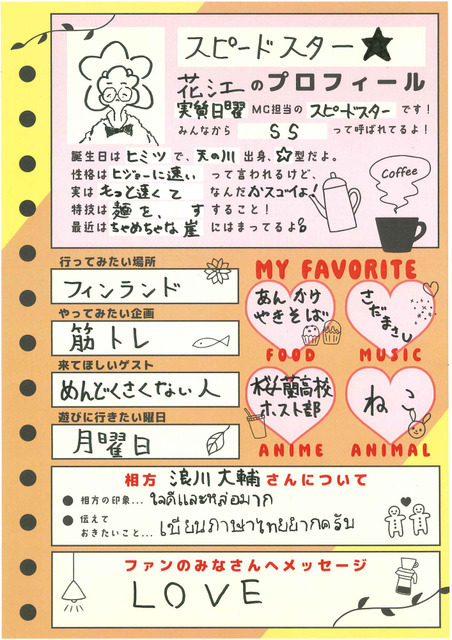 スピードスター★
花江のプロフィール
実質日曜 MC担当の スピードスター です！
みんなから SS って呼ばれてるよ！
誕生日は ヒミツ で、 天の川 出身、☆型だよ。
性格は ヒジョーに速い って言われるけど、
実は もっと速くて なんだかスゴーイよ！
特技は 麺を、 す すること！
最近は ちゃめちゃな 崖 にはまってるよ。
Coffee
行ってみたい場所
フィンランド
やってみたい企画
筋トレ
来てほしいゲスト
めんどくさくない人
遊びに行きたい曜日
月曜日
MY FAVORITE
あんかけ
やきそば
FOOD
さだまさし
MUSIC
桜蘭高校
ホスト部
ANIME
ねこ
ANIMAL
相方 浪川大輔 さんについて
● 相方の印象… ใจดีและหล่อมาก
● 伝えて
おきたいこと… เขียนภาษาไทยยากครับ
ファンのみなさんへメッセージ
LOVE